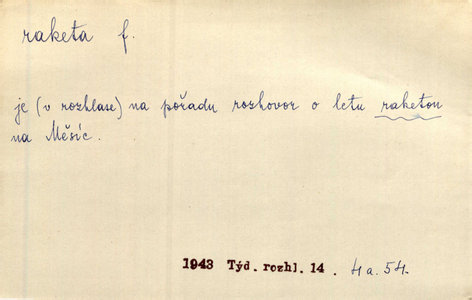 raketa f.
je (v rozhlase) na pořadu rozhovor o letu raketou
na Měsíc.
1943 Týd. rozhl. 14. 4 a. 54.